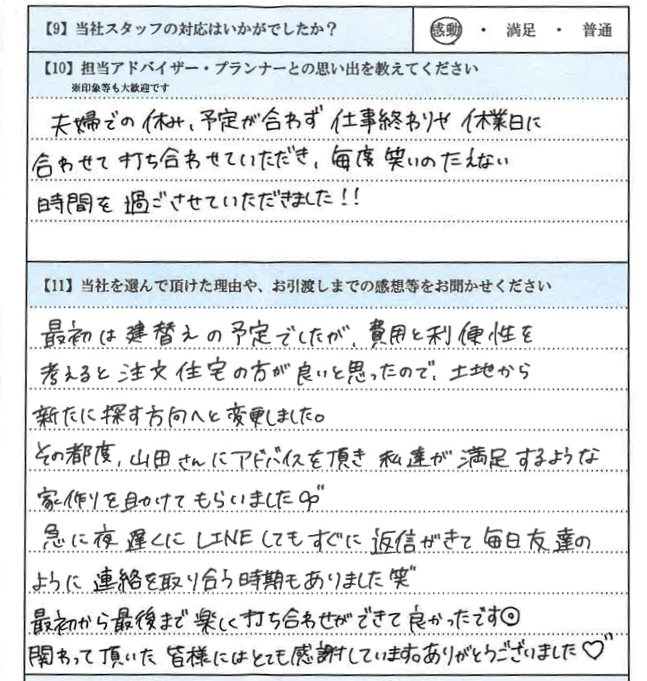 【9】当社スタッフの対応はいかがでしたか？
感動 ・ 満足 ・ 普通
【10】担当アドバイザー・プランナーとの思い出を教えてください
※印象等も大歓迎です
夫婦での休み、予定が合わず 仕事終わりや 休業日に
合わせて 打ち合わせていただき、毎度 笑いのたえない
時間を 過ごさせていただきました!!
【11】当社を選んで頂けた理由や、お引渡しまでの感想等をお聞かせください
最初は建替えの予定でしたが、費用と利便性を
考えると注文住宅の方が良いと思ったので、土地から
新たに探す方向へと変更しました。
その都度、山田さんにアドバイスを頂き 私達が満足するような
家作りを助けてもらいました
急に夜遅くにLINEしてもすぐに返信がきて毎日友達の
ように連絡を取り合う時期もありました笑
最初から最後まで楽しく打ち合わせができて良かったです◎
関わって頂いた皆様にはとても感謝しています。ありがとうございました♡